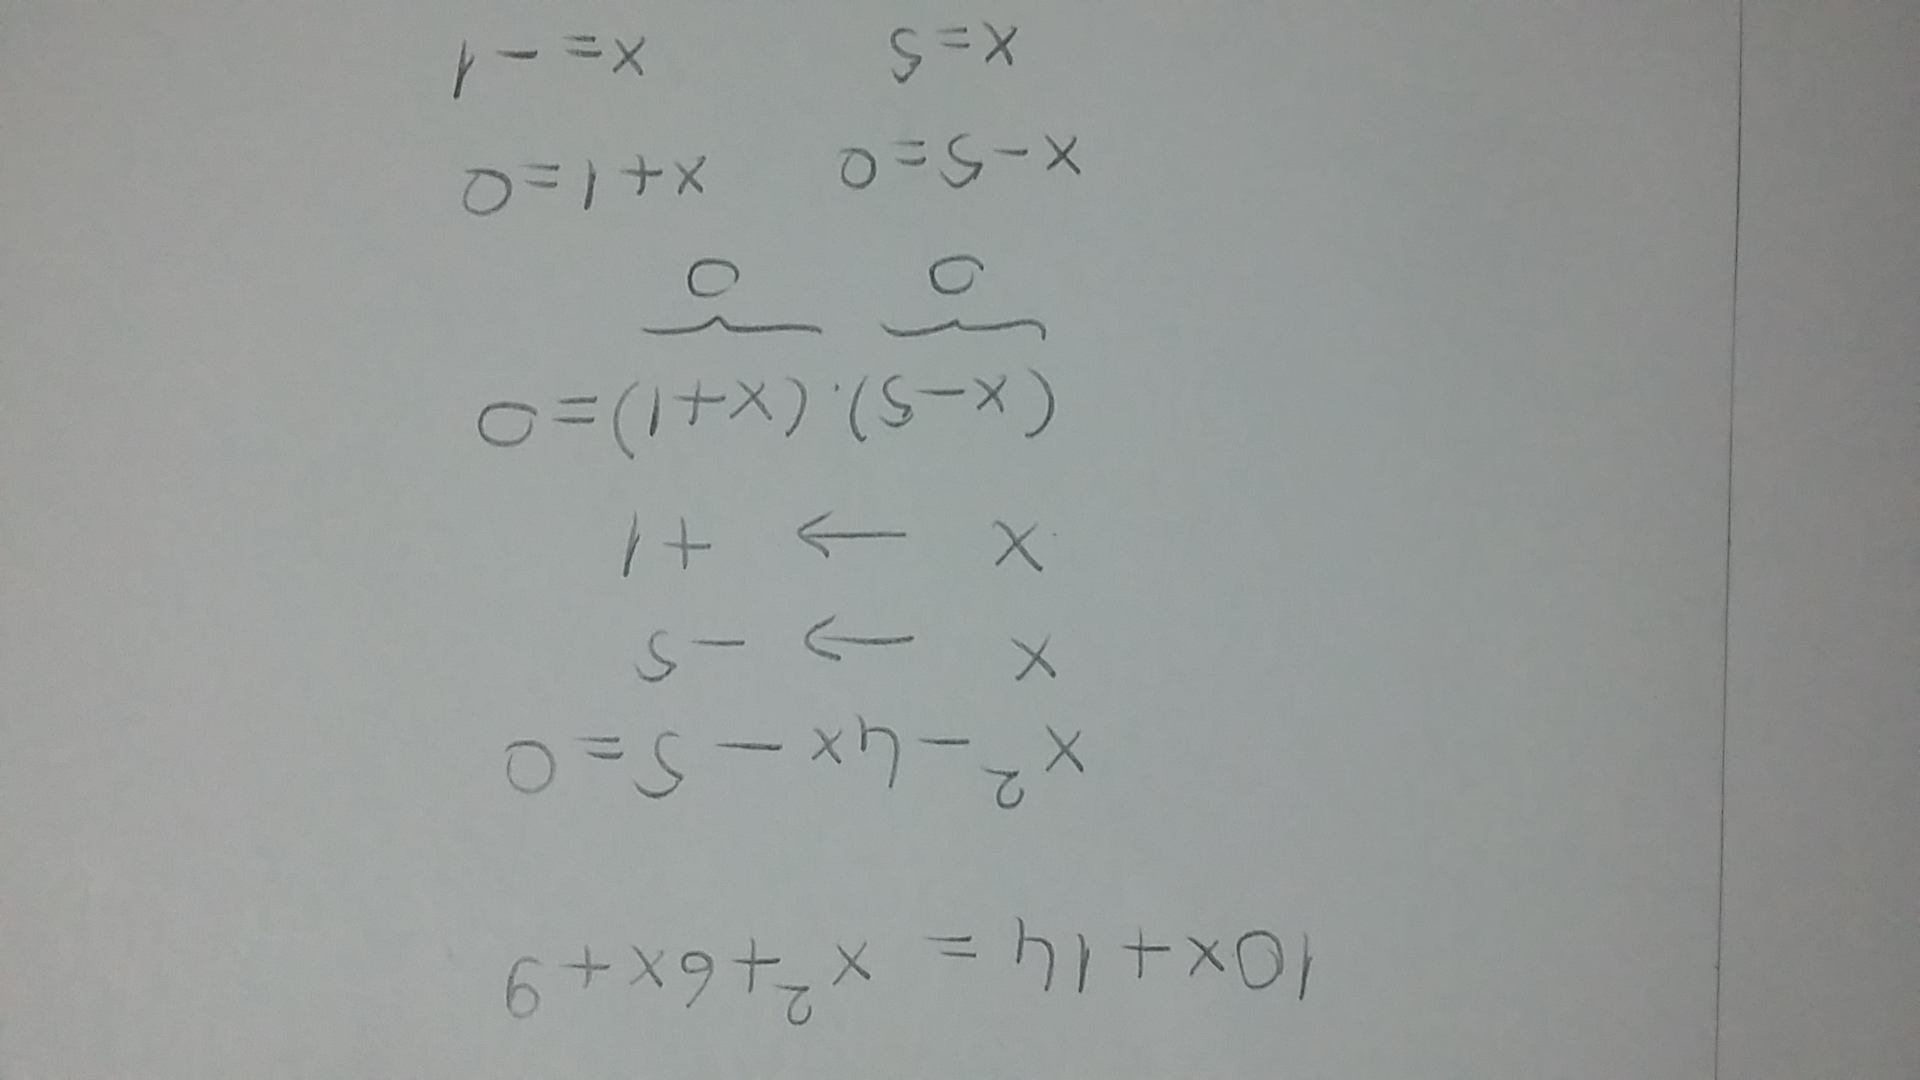 10x+14 = x²+6x+9
x²-4x-5=0
x → -5
x → +1
(x-5).(x+1)=0
0 0
x-5=0 x+1=0
x=5 x=-1